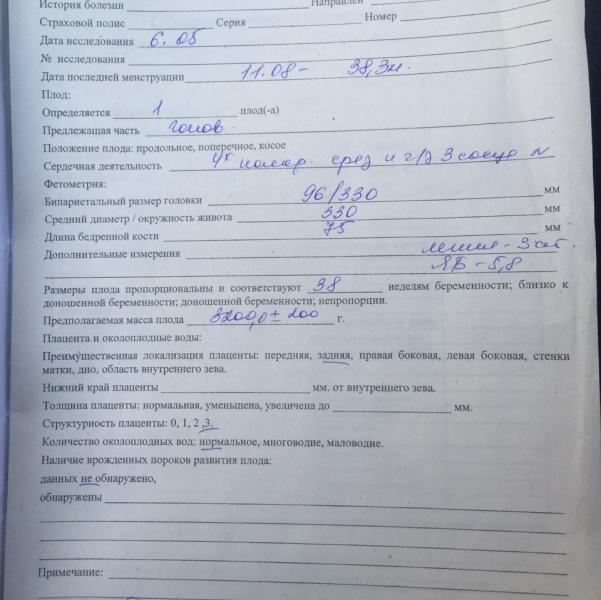 История болезни Направлен
Страховой полис Серия Номер
Дата исследования 6.05
№ исследования
Дата последней менструации 11.08 – 38,3н.
Плод:
Определяется 1 плод(-а)
Предлежащая часть голов.
Положение плода: продольное, поперечное, косое
Сердечная деятельность 4х камер. срез и г/з 3 сосуд N
Фетометрия:
Бипариетальный размер головки 96/330 мм
Средний диаметр / окружность живота 330 мм
Длина бедренной кости 75 мм
Дополнительные измерения
– 5,8
Размеры плода пропорциональны и соответствуют 38 неделям беременности; близко к
доношенной беременности; доношенной беременности; непропорции.
Предполагаемая масса плода 3200,0 ± 200 г.
Плацента и околоплодные воды:
Преимущественная локализация плаценты: передняя, задняя, правая боковая, левая боковая, стенки
матки, дно, область внутреннего зева.
Нижний край плаценты мм. от внутреннего зева.
Толщина плаценты; нормальная, уменьшена, увеличена до мм.
Структурность плаценты: 0, 1, 2 ,3.
Количество околоплодных вод: нормальное, многоводие, маловодие.
Наличие врожденных пороков развития плода:
данных не обнаружено,
обнаружены
Примечание: